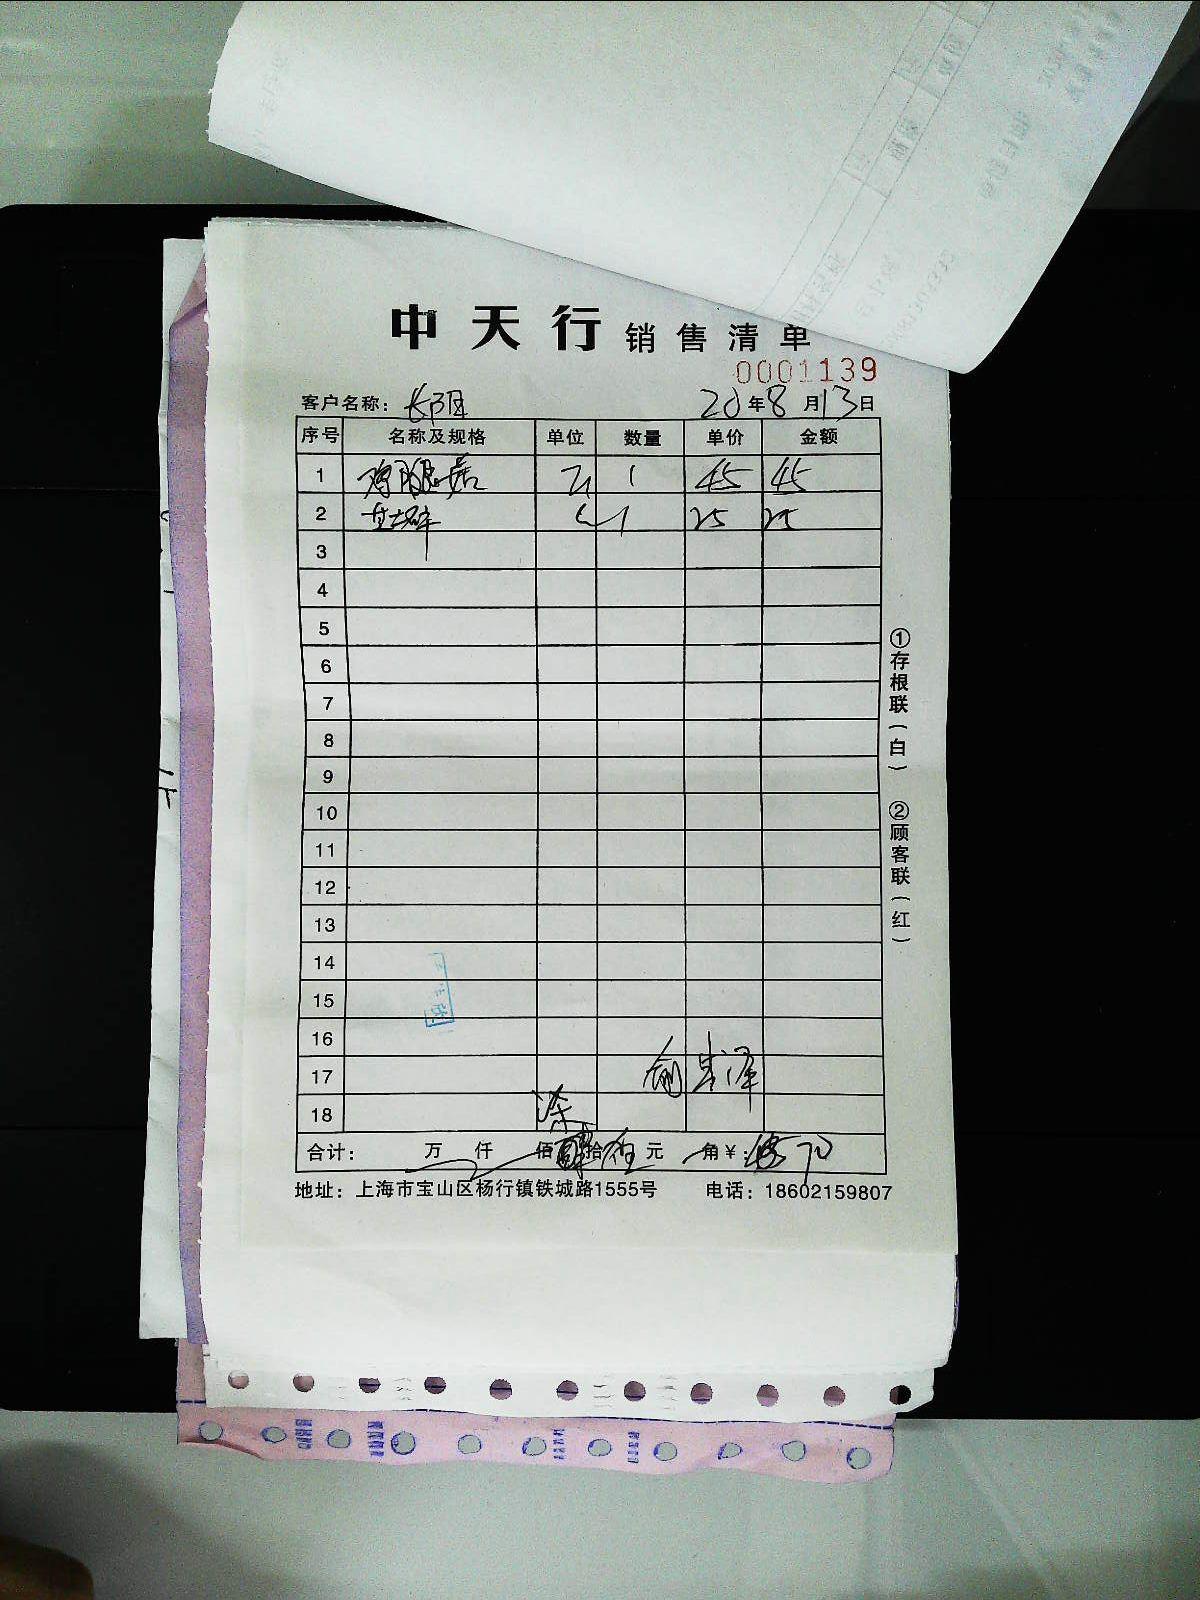 中天行 销售清单
0001139
客户名称: 长阳 20年8月13日
序号 名称及规格 单位 数量 单价 金额
1 鸡腿菇 1 45 45
2 1 25 25
3
4
5
6
7
8
9
10
11
12
13
14
15
16
17
18
合计: 万 仟 佰 拾 元 角¥: 70
地址: 上海市宝山区杨行镇铁城路1555号 电话: 18602159807
①存根联(白) ②顾客联(红)